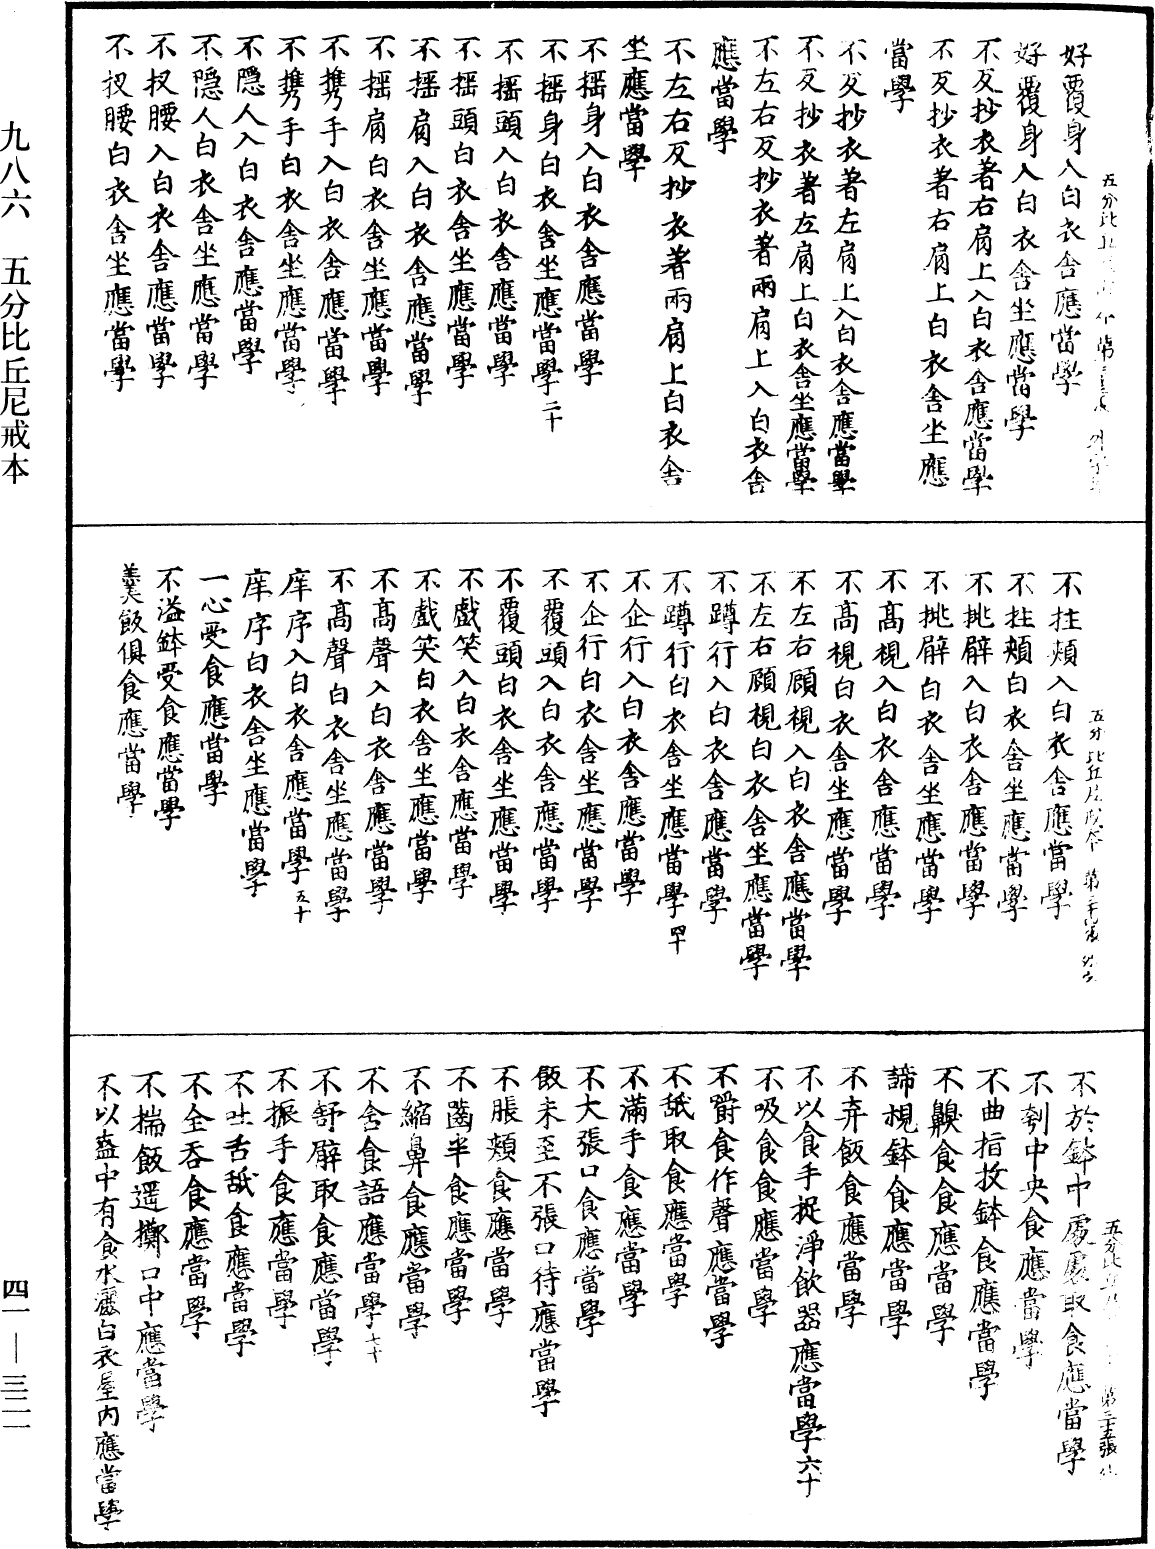 好覆身入白衣舍應當學
好覆身入白衣舍坐應當學
不反抄衣著右肩上入白衣舍應當學
不反抄衣著右肩上白衣舍坐應
當學
不反抄衣著左肩上入白衣舍應當學
不反抄衣著左肩上白衣舍坐應當學
不左右反抄衣著兩肩上入白衣舍
應當學
不左右反抄衣著兩肩上白衣舍
坐應當學
不搖身入白衣舍應當學
不搖身白衣舍坐應當學二十
不搖頭入白衣舍應當學
不搖頭白衣舍坐應當學
不搖肩入白衣舍應當學
不搖肩白衣舍坐應當學
不携手入白衣舍應當學
不携手白衣舍坐應當學
不隱人入白衣舍應當學
不隱人白衣舍坐應當學
不扠腰入白衣舍應當學
不扠腰白衣舍坐應當學
五分比丘尼戒本 第三
不拄頰入白衣舍應當學
不拄頰白衣舍坐應當學
不挑臂入白衣舍應當學
不挑臂白衣舍坐應當學
不高視入白衣舍應當學
不高視白衣舍坐應當學
不左右顧視入白衣舍應當學
不左右顧視白衣舍坐應當學
不蹲行入白衣舍應當學
不蹲行白衣舍坐應當學四十
不企行入白衣舍應當學
不企行白衣舍坐應當學
不覆頭入白衣舍應當學
不覆頭白衣舍坐應當學
不戲笑入白衣舍應當學
不戲笑白衣舍坐應當學
不高聲入白衣舍應當學
不高聲白衣舍坐應當學
庠序入白衣舍應當學五十
庠序白衣舍坐應當學
一心受食應當學
不溢鉢受食應當學
羹飯俱食應當學
五分比丘 第三十五張
不於鉢中處處取食應當學
不刳中央食應當學
不曲指抆鉢食應當學
不齅食食應當學
諦視鉢食應當學
不弃飯食應當學
不以食手捉淨飲器應當學六十
不吸食食應當學
不嚼食作聲應當學
不舐取食應當學
不滿手食應當學
不大張口食應當學
飯未至不張口待應當學
不脹頰食應當學
不齧半食應當學
不縮鼻食應當學
不含食語應當學七十
不舒臂取食應當學
不振手食應當學
不吐舌舐食應當學
不全吞食應當學
不揣飯遥擲口中應當學
不以盪中有食水灑白衣屋内應當學
九八六 五分比丘尼戒本
四一—三二一